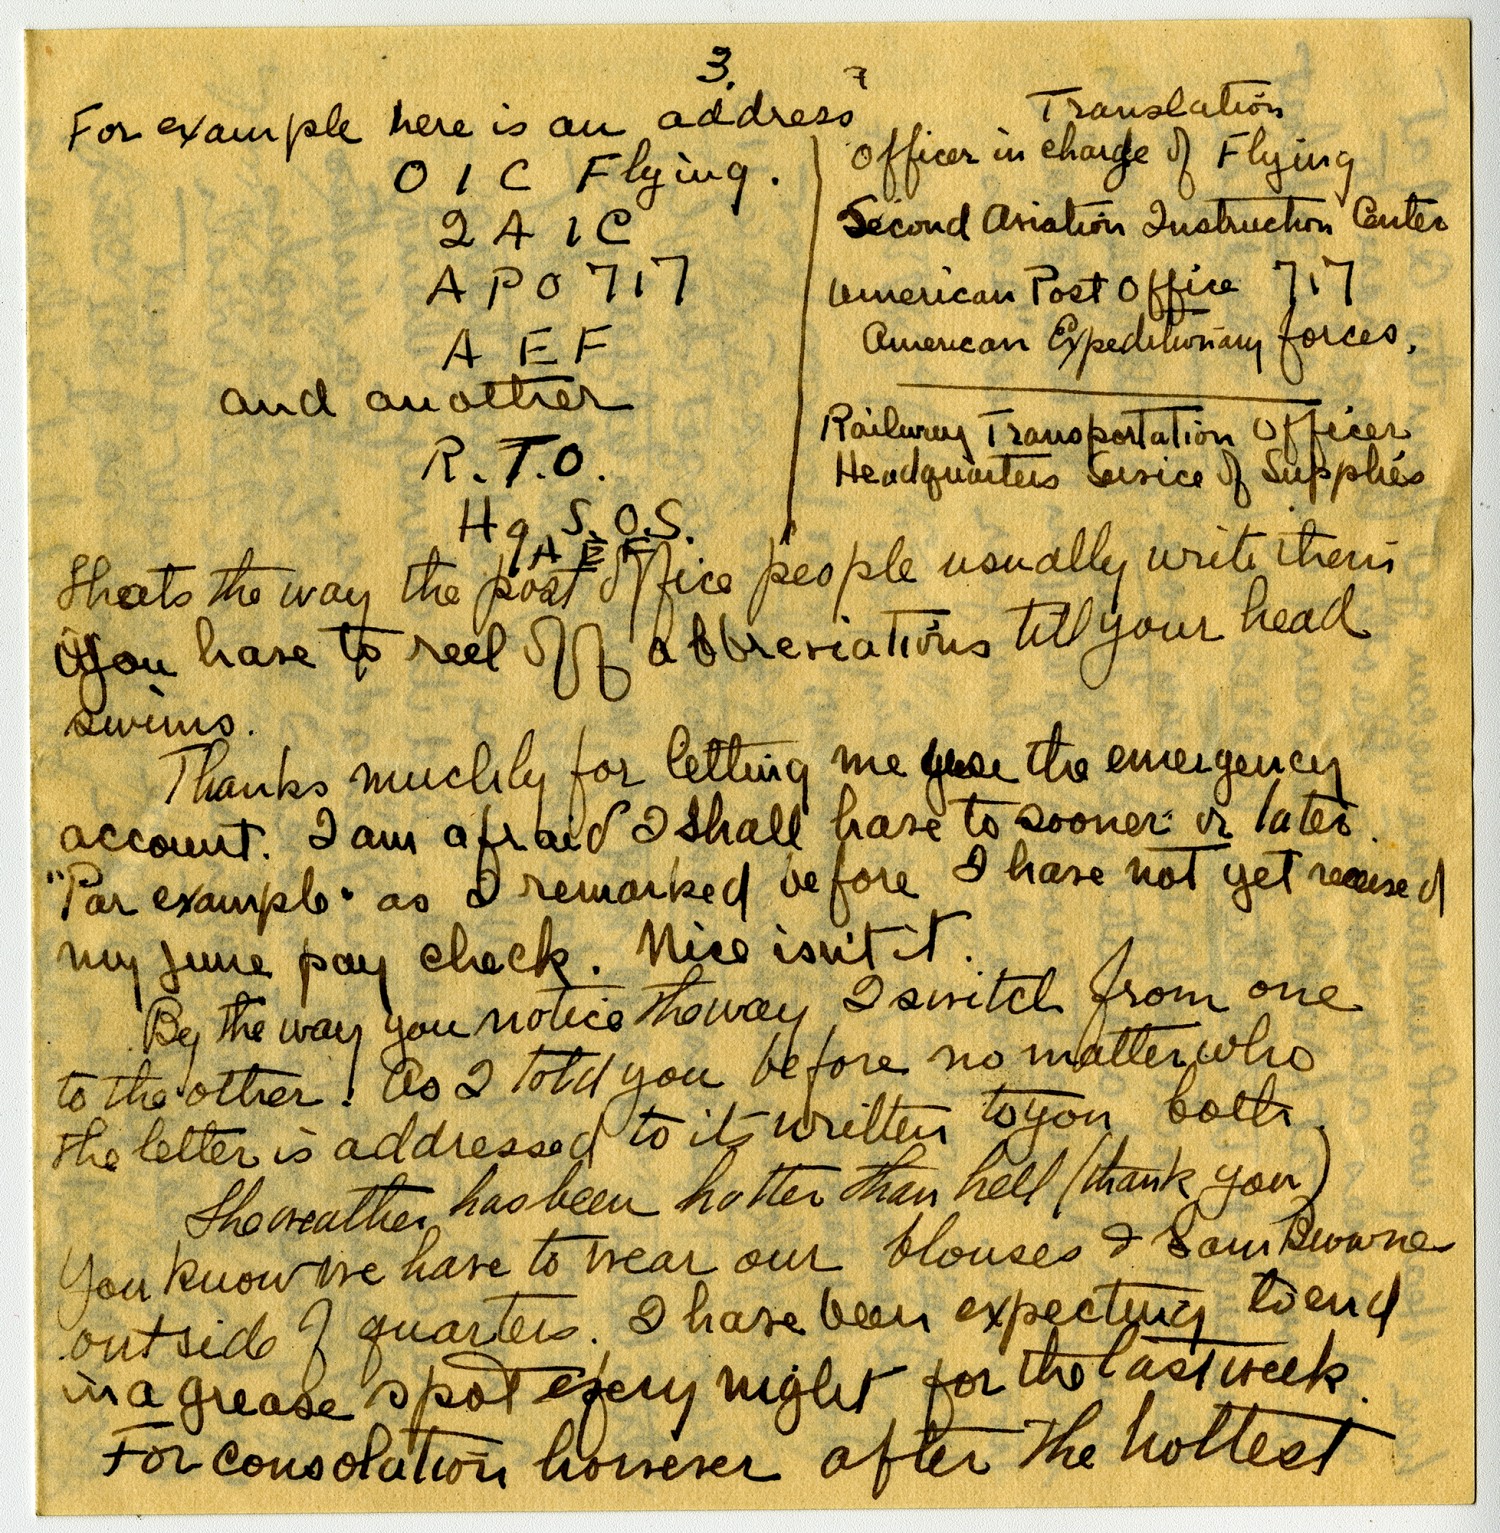 3.
For example here is an address
O I C Flying.
2 A I C
A P O 717
A E F
and another
R.T.O.
Hq S.O.S.
A E F
Translation
Officer in charge of Flying
Second Aviation Instruction Center
American Post Office 717
American Expeditionary forces.
Railway Transportation Officer
Headquarters Service of Supplies
Thats the way the post office people usually write them
You have to reel off abbreviations till your head
swims.
Thanks muchly for letting me use the emergency
account. I am afraid I shall have to sooner or later.
"Par example" as I remarked before I have not yet received
my June pay check. Nice isn't it.
By the way you notice the way I switch from one
to the other! As I told you before no matter who
the letter is addressed to its written to you both.
The weather has been hotter than hell (thank you)
You know we have to wear our blouses & Sam Browne
outside of quarters. I have been expecting to end
in a grease spot every night for the last week.
For consolation however after the hottest